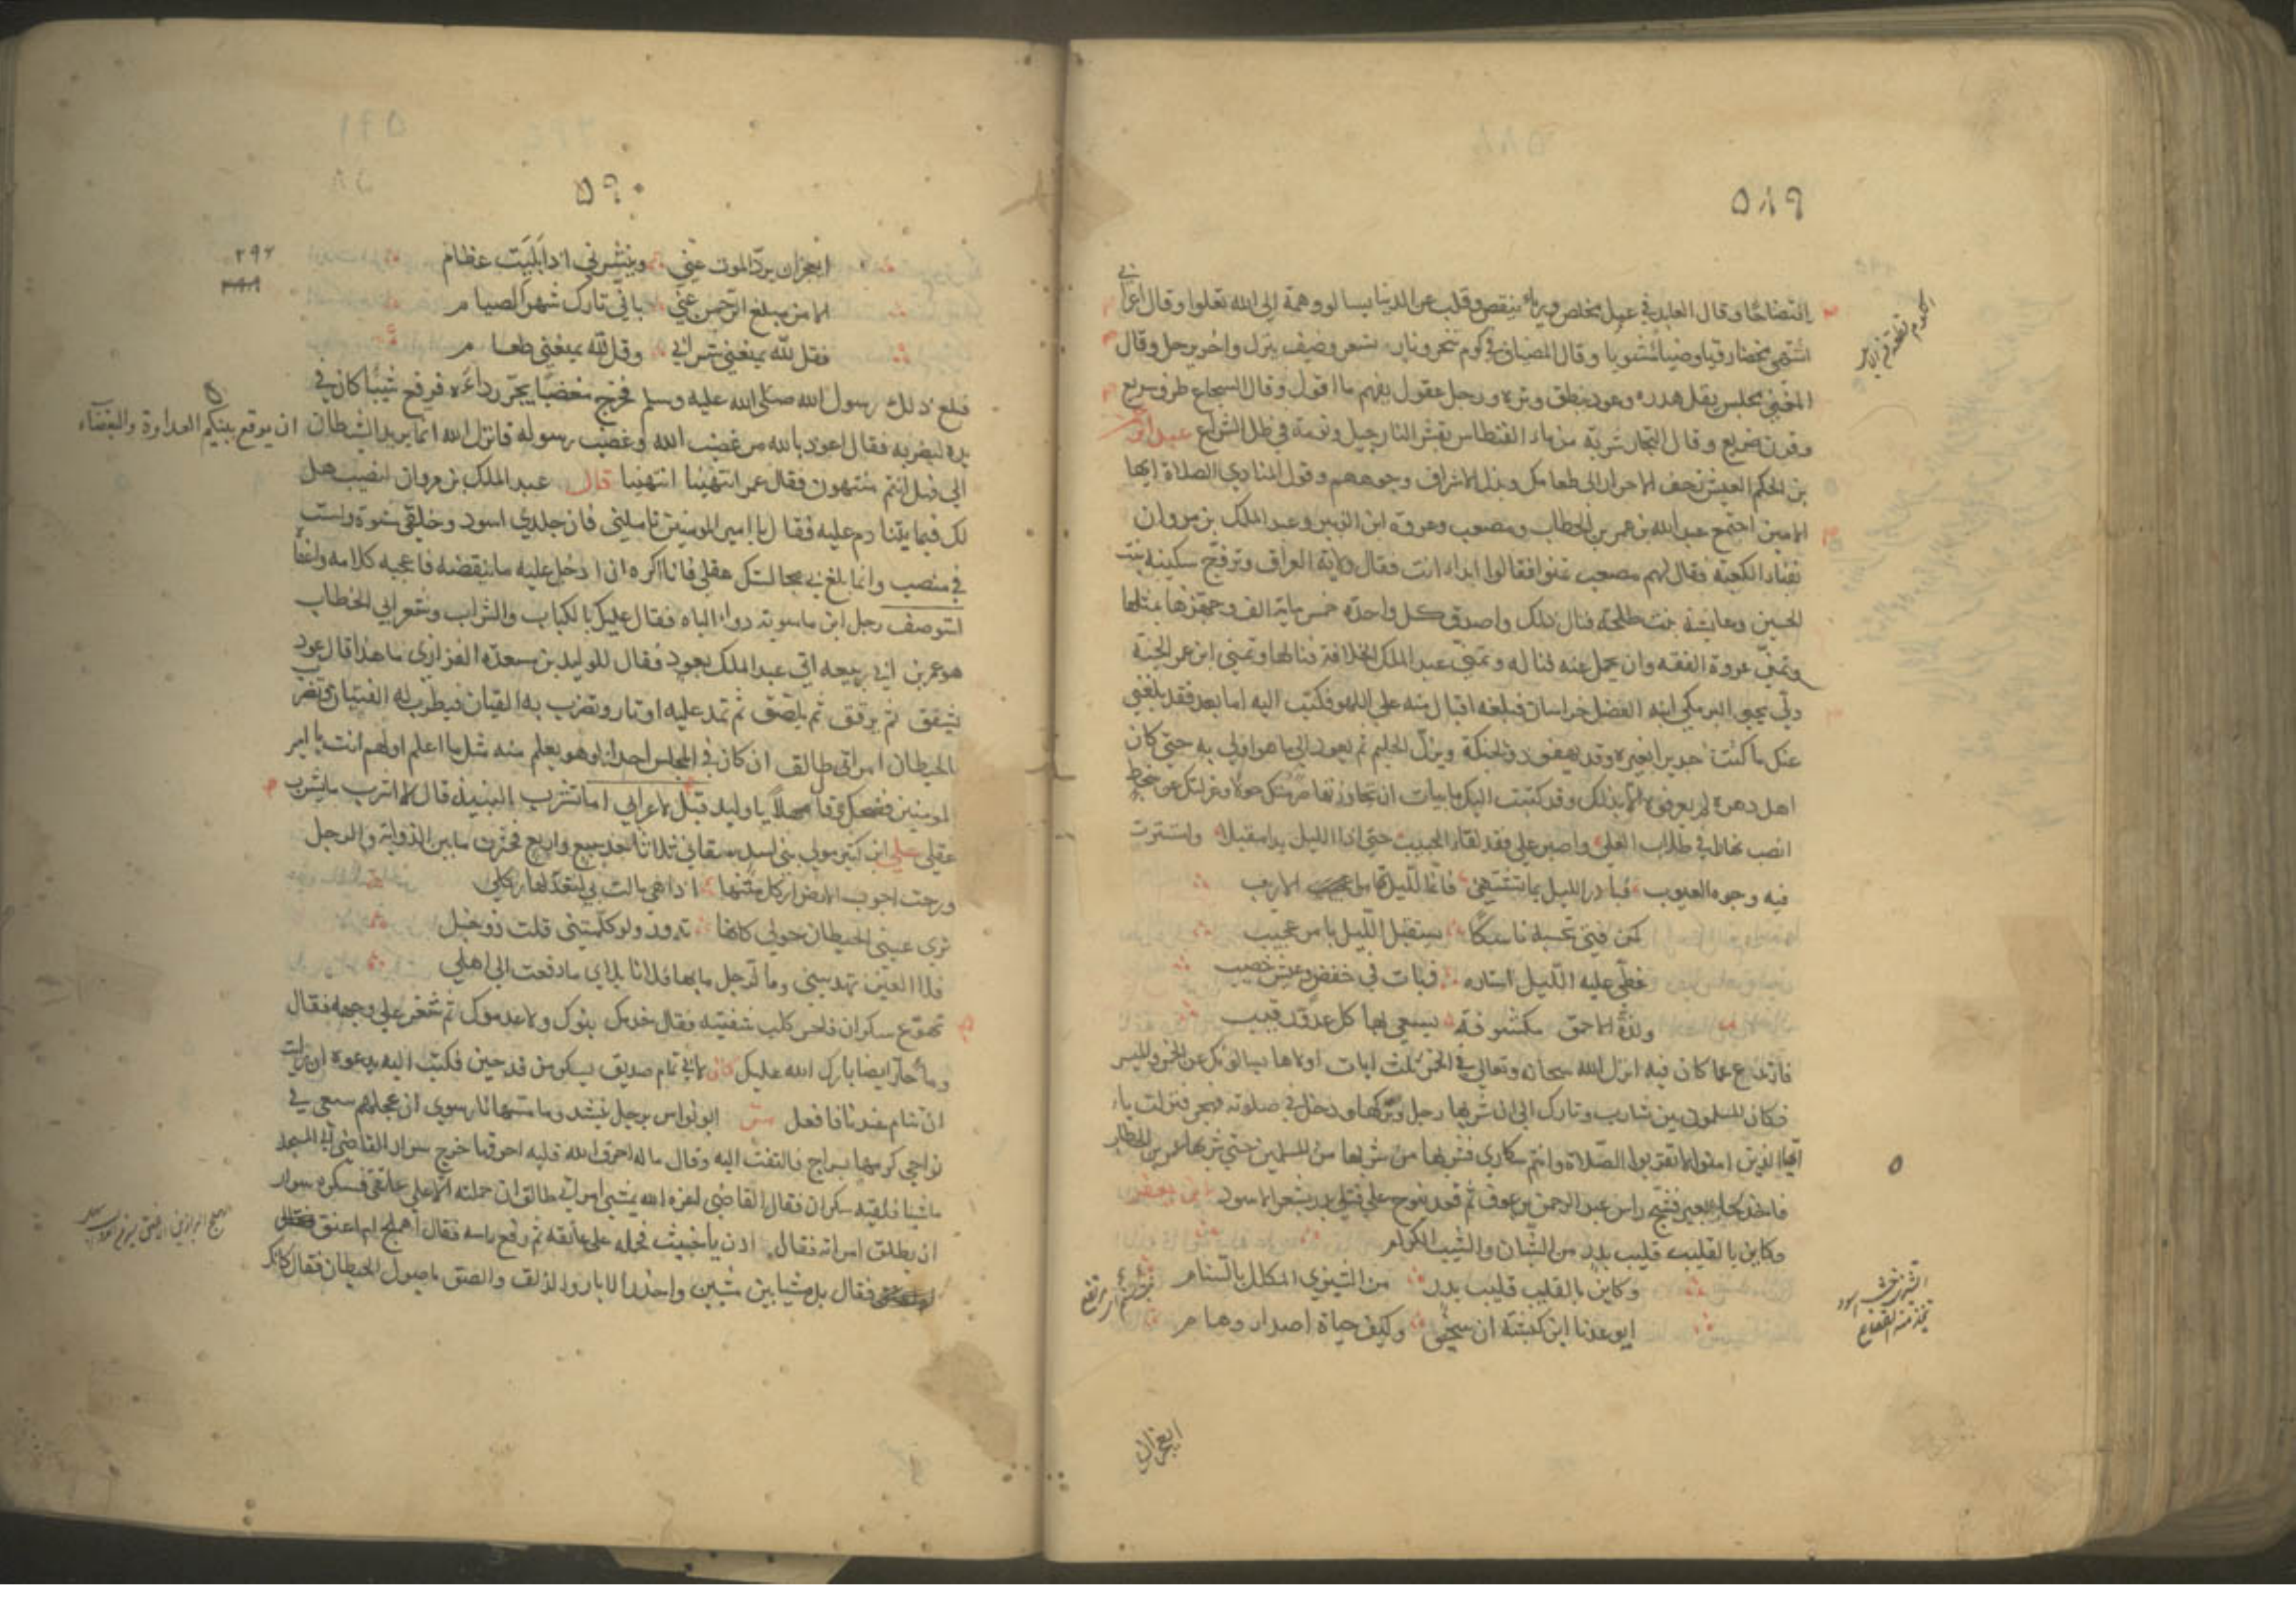 ٥٨٩
افتضاحا وقال العابد في عمل يخلص ورياء ينقص وقلب عن الدنيا يسالو وهمة إلى الله تعلوا وقال اعرابي
اشتهي وضبا مشويا وقال المضياف في كوم تنحر ونار تسعر وضيف ينزل واخر يرحل وقال
المغني مجلس يقل هدره وعود ينطق وتره ورجل عقول يفهم ما اقول وقال الشجاع طرف سريع
وقرن ضريع وقال التجار شربة من ماء الفنطاس بقشر النارجيل ونومة في ظل الشراع عبد
بن الحكم العيش تحف الاحرار الى طعامك وبذل الاشراف وجوههم وقول المنادي الصلاة ايها
الامين اجتمع عبد الله بن عمر بن الخطاب ومصعب وعروة ابن الزبير وعبد الملك بن مروان
بفناء الكعبة فقال لهم مصعب تمنوا فقالوا ابدا انت فقال ولاية العراق وتزوج سكينة بنت
الحسين وعايشة بنت طلحة فنال ذلك واصدق كل واحدة خمس ماية الف وجهزها بمثلها
وتمنى عروة الفقه وان يحمل عنه فناله وتمنى عبد الملك الخلافة فنالها وتمنى ابن عمر الجنة
ولي يحيى البرمكي ابنه الفضل خراسان فبلغه اقبال منه على اللهو فكتب اليه اما بعد فقد بلغني
عنك ما كنت جديرا بغيره وقد يهفو ذو الحنكة ويزل الحليم ثم يعود الى ما هو اولى به حتى كان
اهل دهره لم يعرفوه الا بذلك وقد كتبت اليك بابيات ان تجاوزتها
انصب نهارا في طلاب العلى واصبر على فقد لقاء الحبيب حتى اذا الليل بدا مقبلا واستترت
فيه وجوه العيوب فبادر الليل بما تشتهي فانما الليل نهار الاريب
كم من فتى تحسبه ناسكا يستقبل الليل بامر عجيب
غطى عليه الليل استاره فبات في خفض وعيش خصيب
ولذة الاحمق مكشوفة يسعى بها كل عدو رقيب
فارتدع عما كان فيه انزل الله سبحانه وتعالى في الخمر ثلث ايات اولاها يسالونك عن الخمر والميسر
فكان المسلمون بين شارب وتارك الى ان شربها رجل وتركها ودخل في صلوته فهجر فنزلت يا
ايها الذين امنوا لا تقربوا الصلاة وانتم سكارى فشربها من شربها من المسلمين حتى شربها عمر بن الخطاب
فاخذ لحي بعير فشج راس عبد الرحمن بن عوف ثم قعد ينوح على قتلى بدر بشعر الاسود بن يعفر
وكاين بالقليب قليب بدر من الشبان والشيب الكرام
وكاين بالقليب قليب بدر من الشيزي المكلل بالسنام
ايوعدنا ابن كبشة ان سنحيى وكيف حياة اصداء وهام
ايعجزان
٥٩٠
ايعجزان يرد الموت عني وينشرني اذا ابليت عظام
الا من مبلغ الرحمن عني باني تارك شهر الصيام
فقل لله يمنعني شرابي وقل لله يمنعني طعام
فبلغ ذلك رسول الله صلى الله عليه وسلم فخرج مغضبا يجر رداءه فرفع شيئا كان في
يده ليضربه فقال اعوذ بالله من غضب الله وغضب رسوله فانزل الله انما يريد الشيطان ان يوقع بينكم العداوة والبغضاء
الى فهل انتم منتهون فقال عمر انتهينا انتهينا قال عبد الملك بن مروان لنصيب هل
لك فيما يتنادم عليه فقال يا امير المومنين تاملني فان جلدي اسود وخلقي مشوه ولست
في منصب وانما بلغ بي مجالستك عقلي فانا اكره ان ادخل عليه ما ينقصه فاعجبه كلامه واعفا
استوصف رجل ابن ماسويه دواء الباه فقال عليك بالكباب والشراب وشعر ابي الخطاب
هو عمر بن ابي ربيعه اتي عبد الملك بعود فقال للوليد بن مسعدة الفزاري ما هذا قال عود
يشقق ثم يرقق ثم يلصق ثم تمد عليه اوتار وتضرب به القيان فيطرب له الفتيان وتضرب
بالحيطان امراتي طالق ان كان في المجلس احد الا وهو يعلم منه مثل ما اعلم اولهم انت يا امير
المومنين فضحك وقال مهلا يا وليد قيل لاعرابي اما تشرب النبيذ قال لا اشرب ما يشرب
عقلي علي ابن كثير مولى بني اسد سقاني ثلاثا بعد سبع واربع فخثرت ما بين الذوابة والرجل
ورحت اجوب الارض اركل متنها اذا هي مالت بي لتعدلها ركلي
ترى عيني الحيطان حولي كانها تدور ولو كلمتني قلت ذو خبل
فلا العين تهديني وما لرجل ما بها فلانا بلاي ما دفعت الى اهلي
تهوع سكران فلحس كلب شفتيه فقال خدمك بنوك ولا عدموك ثم شغر على وجهه فقال
وماء حار ايضا بارك الله عليك كان لابي تمام صديق يسكر من قدحين فكتب اليه يدعوه ان رايت
ان تنام عندنا فافعل ابو نواس برجل ينشد وما مسها نار سوى ان علجهم سعى في
نواحي كرمها بسراج فالتفت اليه وقال ما له احرق الله قلبه احرقها خرج سوار القاضي الى المسجد
ماشيا فلقيه سكران فقال القاضي اعزه الله يمشي امراتي طالق ان حملته الا على عاتقي فكره سوار
ان يطلق امراته فقال ادن يا خبيث فحمله على عاتقه ثم رفع راسه فقال اهملج ام اعنق
فقال بل مشيا بين مشيين واحذر الابار والزلق والصق باصول الحيطان فقال كانك